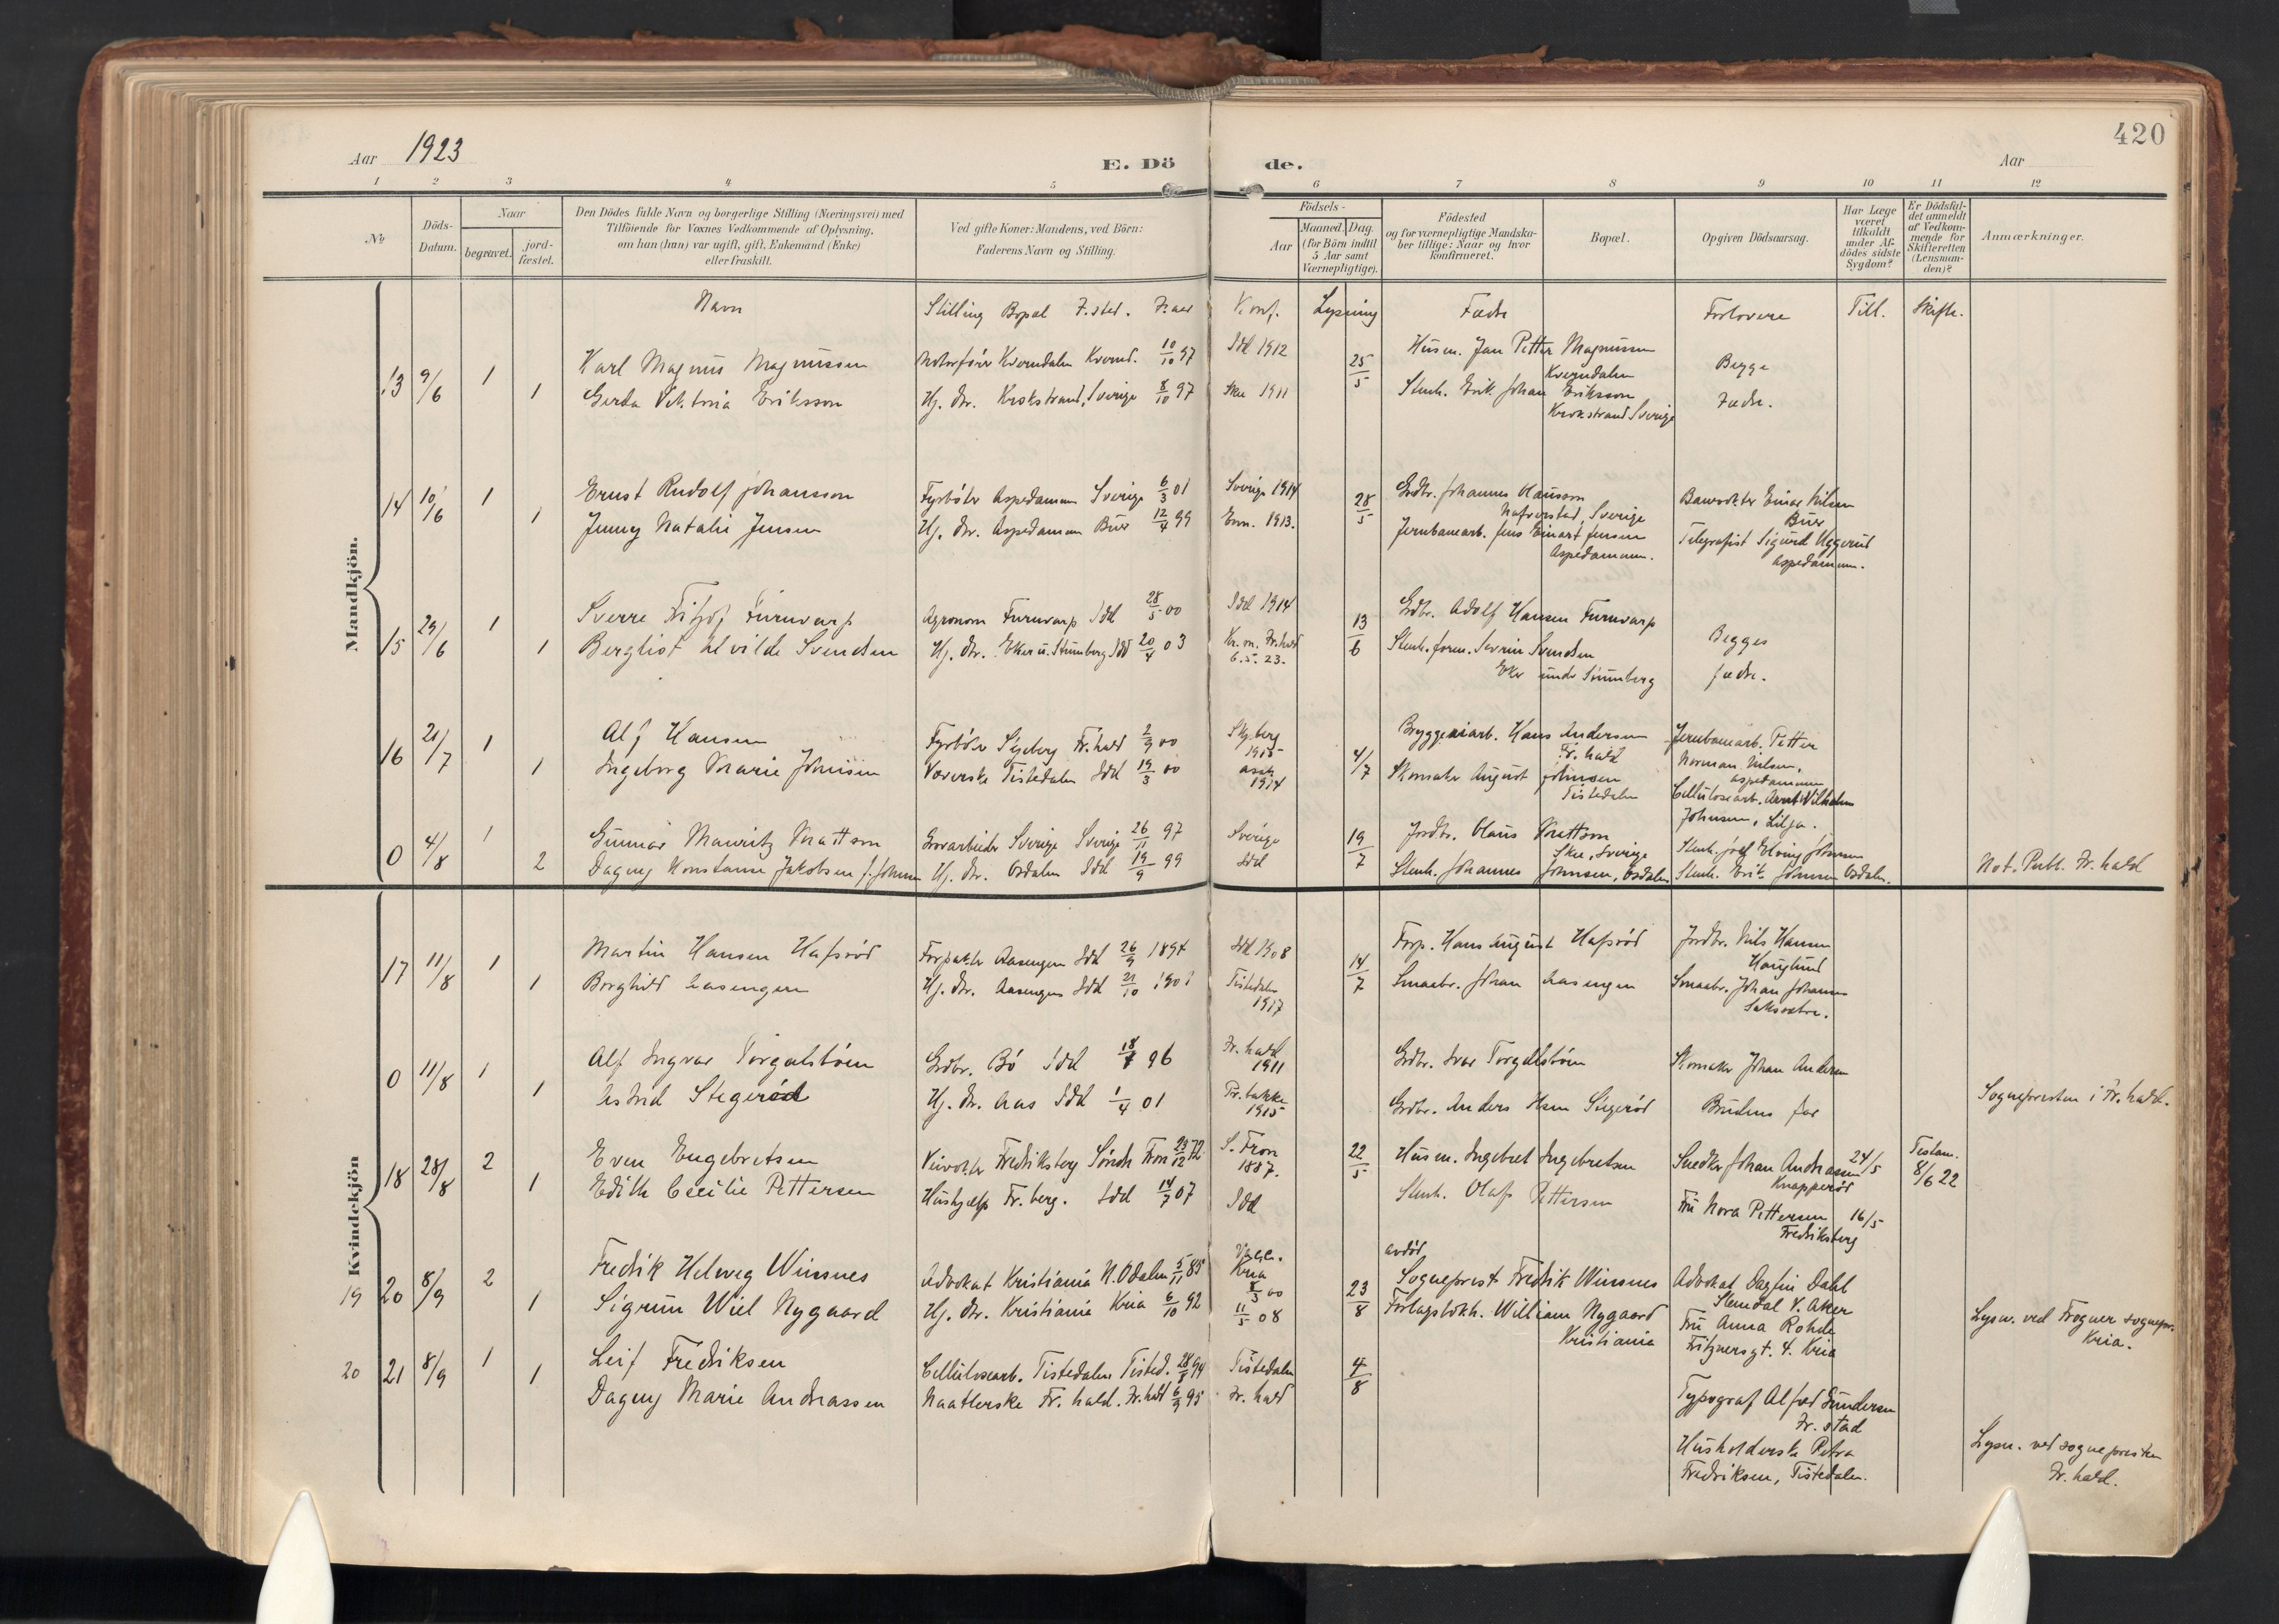 420
Aar 1923
E. Dö de.
Aar
1 2 3 4 5 6 7 8 9 10 11 12
No
Döds-Datum.
Naar
begravet.
jord-fæstet.
Den Dödes fulde Navn og borgerlige Stilling (Næringsvei) med
Tilföiende for Voxnes Vedkommende af Oplysning,
om han (hun) var ugift, gift, Enkemand (Enke)
eller fraskilt.
Ved gifte Koner: Mandens, ved Börn:
Faderens Navn og Stilling.
Födsels-
Aar
Maaned. Dag.
(for Börn indtil
5 Aar samt
Værnepligtige).
Födested
og for værnepligtige Mandska-
ber tillige: Naar og hvor
konfirmeret.
Bopæl.
Opgiven Dödsaarsag.
Har Læge
været
tilkaldt
under Af-
dödes sidste
Sygdom?
Er Dödsfal-
det anmeldt
af Vedkom-
mende for
Skifteretten
(Lensman-
den)?
Anmærkninger.
Mandkjön.
Kvindekjön
Navn Stilling Bopæl F.sted. F.aar Konf. Lysning Fædre Forlovere Till. Skifte.
13 9/6 1 Karl Magnus Magnussen Motorfører Kverndalen Kvernd. 10/10 97 Idd 1912 25/5 Husm. Jan Petter Magnussen
Kverndalen
Begge
1 Gerda Viktoria Eriksson Hj. dtr. Krokstrand, Sverige 8/10 97 Skee 1911 Stenh. Erik Johan Eriksson
Krokstrand Sverige
Fædre.
14 10/6 1 Ernst Rudolf Johansson Fyrbøter Aspedammen Sverige 6/3 01 Sverige 1914 28/5 Grdbr. Johannes Olausson
Nafverstad, Sverige
Banevokter Einar Nilsen
Buer
1 Jenny Natalie Jensen Hj. dtr. Aspedammen Buer 12/4 99 Enn. 1913. Jernbanearb. Jens Einart Jensen
Aspedammen.
Telegrafist Sigurd Uggerud
Aspedammen.
15 29/6 1 Sverre Fritjof Furuvarp Agronom Furuvarp Idd 28/5 00 Idd 1914 13/6 Grdbr. Adolf Hansen Furuvarp
Begges
1 Bergliot Alvilde Svendsen Hj. dtr. Eker u. Stumberg Idd 20/4 03 Kr. m. Fr.hald
6.5.23.
Stenh. form. Severin Svendsen
Eker under Stumberg
fædre.
16 21/7 1 Alf Hansen Fyrbøter Skjeberg Fr.hald 2/9 00 Skjeberg
1915
4/7 Bryggeriarb. Hans Andersen
Fr. hald
Jernbanearb. Petter
Norman Nilsen,
Aspedammen
1 Ingeborg Marie Johnsen Væverske Tistedalen Idd 19/3 00 Asak
1914
Skomaker August Johnsen
Tistedalen
Cellulosearb. Arnt Vilhelm
Johnsen, Lilja.
0 4/8 1 Gunnar Mauritz Mattson Grovarbeider Sverige Sverige 26/11 97 Sverige 19/7 Jordbr. Olaus Mattson
Skee, Sverige
2 Dagny Konstanse Jakobsen f. Johnsen Hj. dtr. Osdalen Idd 19/9 99 Idd Stenh. Johannes Johnsen, Osdalen Stenh. Erik Johnsen Osdalen.
Not. Publ. Fr.hald
17 11/8 1 Martin Hansen Hafsrød Forpakter Aasengen Idd 26/9 1894 Idd 1908 14/7 Forp. Hans August Hafsrød Jordbr. Nils Hansen
Hauglund
1 Borghild Aasengen Hj. dtr. Aasengen Idd 21/10 1901 Tistedalen
1917
Smaabr. Johan Aasengen Smaabr. Johan Johansen
0 11/8 1 Alf Ingvar Torgalsbøen Grdbr. Bø Idd 96 Fr.hald
1911
Grdbr. Ivar Torgalsbøen Skomaker Johan Andersen
1 Astrid Stegerød Hj. dtr. Aas Idd 1/4 01 Pr. bakke
1915
Grdbr. Anders Hsen Stegerød Brudens far
Sognepresten i Fr.hald.
18 28/8 2 Even Engebretsen Veivokter Fredriksberg Søndre Fron 23/12 72 S. Fron
1887.
22/5 Husm. Ingebret Ingebretsen Snedker Johan Andreassen
Knapperød
24/5 Testam.
8/6 22
1 Edith Cecilie Pettersen Hushjælp Fr.berg. Idd 14/7 07 Idd Stenh. Olaf Pettersen Fru Nora Pettersen
Fredriksberg
16/5
19 20 8/9 2 Fredrik Helweg Winsnes Advokat Kristiania N. Odalen 5/11 85
Kria
8/3 00
23/8 avdød
Sogneprest Fredrik Winsnes Advokat Dagfin Dahl
Slemdal V. Aker
1 Sigrun Wiel Nygaard Hj. dtr. Kristiania Kria 6/10 92 11/5 08 Forlagsbokh. William Nygaard
Kristiania
Fru Anna Rohde
Fritznersgt. 4. Kria
Lysn. ved Frogner sognepr.
Kria.
20 21 8/9 1 Leif Fredriksen Cellulosearb. Tistedalen Tisted. 28/8 94 Tistedalen 4/8
Typograf Alfred Gundersen
Fr. stad
1 Dagny Marie Andreassen Naatlerske Fr. hald. Fr.hald 6/9 95 Fr. hald
Husholderske Petra
Fredriksen, Tistedalen.
Lysn. ved sognepresten
Fr. hald.